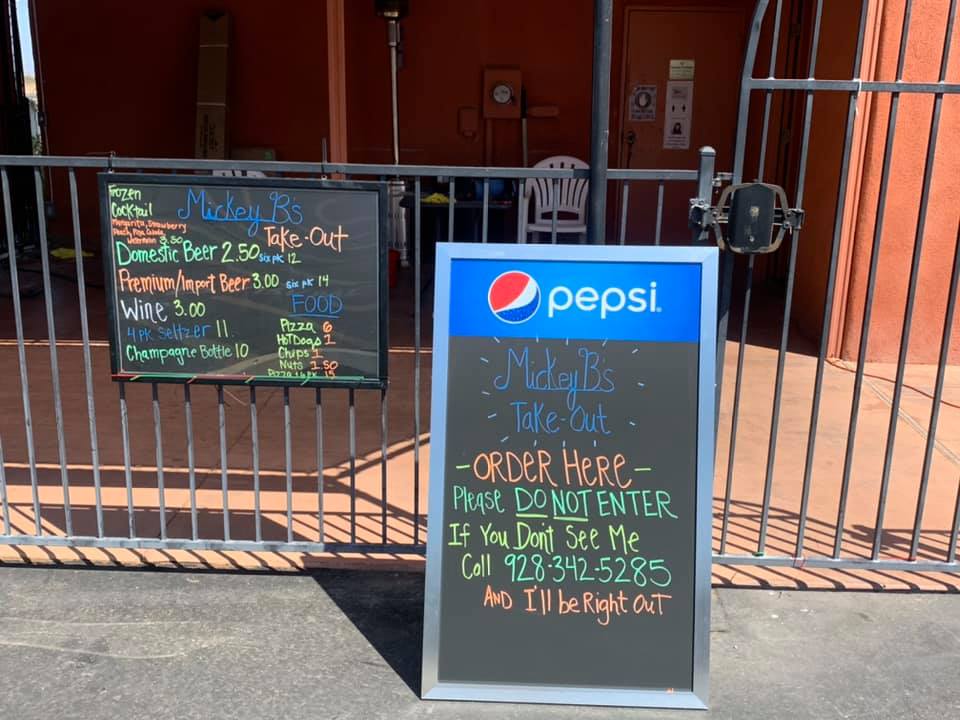 Frozen
Cocktail
Margarita, Strawberry
Peach, Pina Colada,
Watermelon 3.50
Mickey B's
Take-Out
Domestic Beer 2.50 six pk 12
Premium/Import Beer 3.00 six pk 14
Wine 3.00
4 pk Seltzer 11.
Champagne Bottle 10
FOOD
Pizza 6
HotDogs 1
Chips 1
Nuts 1.50
Pizza + 6 pk 15
pepsi
Mickey B's
Take-Out
-ORDER HERE-
Please DO NOT ENTER
If You Don't See Me
Call 928-342-5285
AND I'll be Right OuT